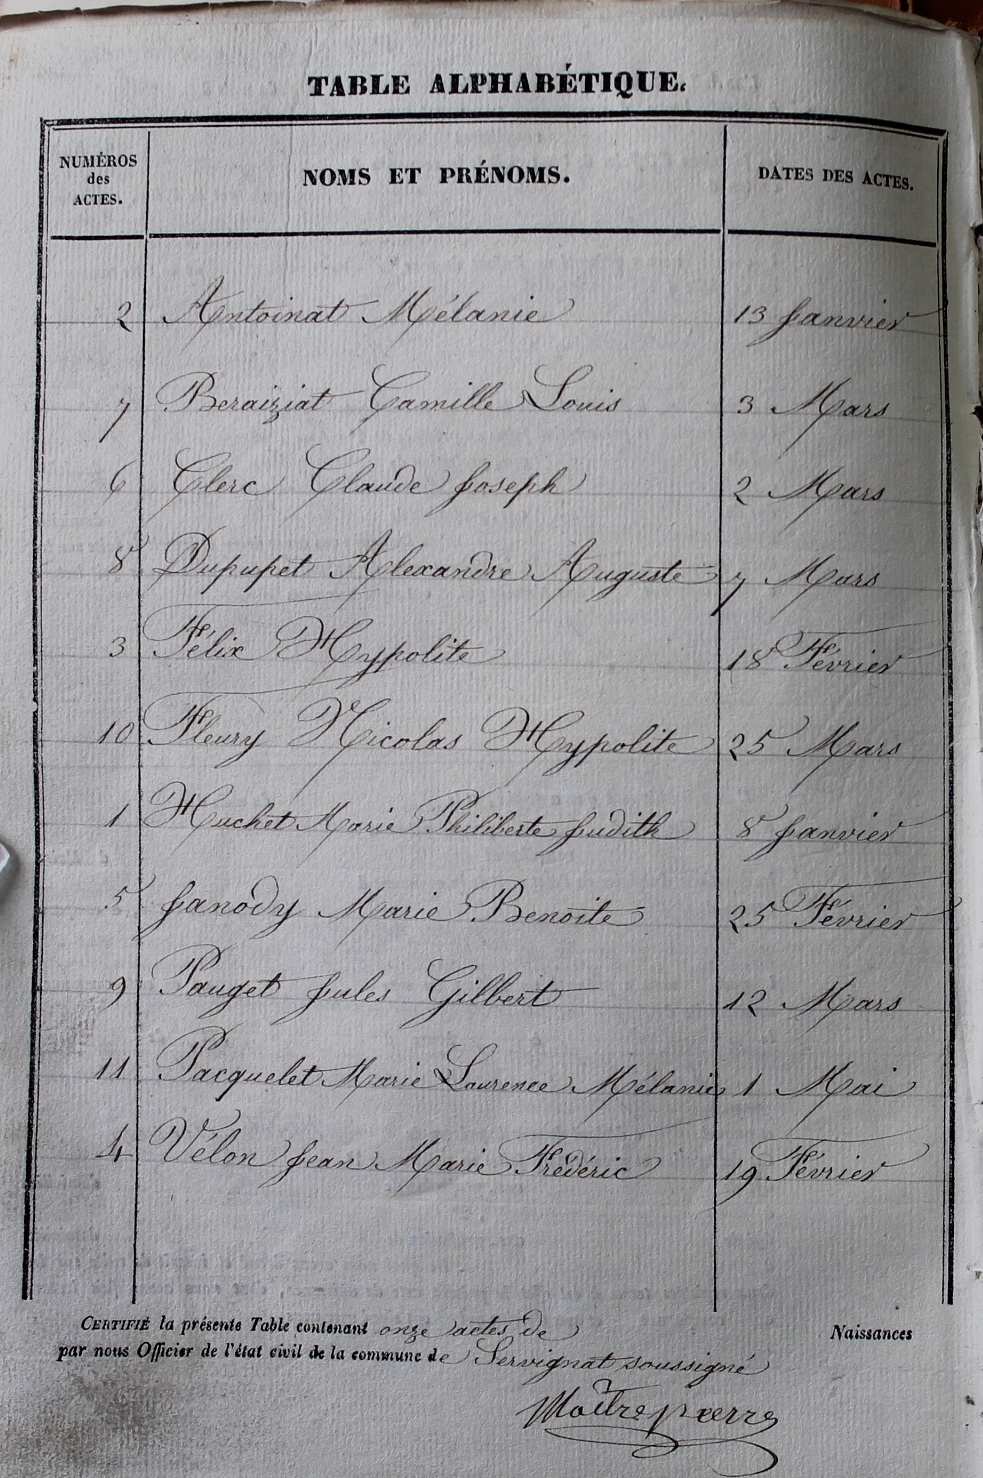 TABLE ALPHABÉTIQUE.
NUMÉROS des ACTES. NOMS ET PRÉNOMS. DATES DES ACTES.
2 Antoinat Mélanie 13 Janvier
7 Beraiziat Camille Louis 3 Mars
6 Clerc Claude Joseph 2 Mars
8 Dupupet Alexandre Auguste 7 Mars
3 Félix Hypolite 18 Février
10 Fleury Nicolas Hypolite 25 Mars
1 Huchet Marie Philiberte Judith 8 Janvier
5 Janody Marie Benoite 25 Février
9 Pauget Jules Gilbert 12 Mars
11 Pacquelet Marie Laurence Mélanie 1 Mai
4 Vélon Jean Marie Frédéric 19 Février
CERTIFIÉ la présente Table contenant onze actes de Naissances
par nous Officier de l'état civil de la commune de Servignat soussigné
Maîtrepierre